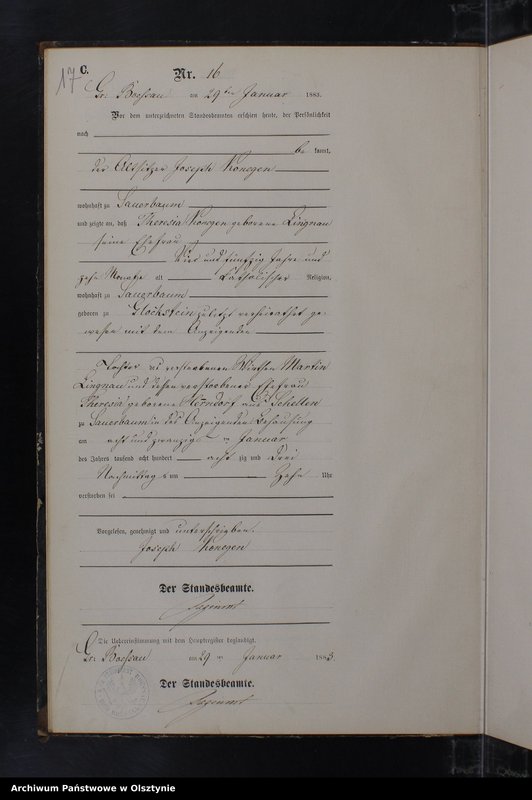 17
C.
Nr. 16
Gr. Bössau am 29ten Januar 1883.
Vor dem unterzeichneten Standesbeamten erschien heute, der Persönlichkeit
nach
be kannt,
der Altsitzer Joseph Konegen
wohnhaft zu Sauerbaum
und zeigte an, daß Theresia Konegen geborene Lingnau
seine Ehefrau
vier und fünfzig Jahre und
zehn Monate alt, katholischer Religion,
wohnhaft zu Sauerbaum
geboren zu Glockstein zuletzt verheirathet ge-
wesen mit dem Anzeigenden
Tochter verstorbenen Wirthen Martin
Lingnau und dessen verstorbener Ehefrau
Theresia geborene aus Schellen
zu Sauerbaum in des Anzeigenden Behausung
am acht und zwanzigsten Januar
des Jahres tausend acht hundert acht zig und drei
Nachmittag s um Zehn Uhr
verstorben sei
Vorgelesen, genehmigt und unterschrieben.
Joseph Konegen
Der Standesbeamte.
Die Uebereinstimmung mit dem Hauptregister beglaubigt.
Gr. Bössau am 29 ten Januar 1883.
Der Standesbeamte.
Archiwum Państwowe w Olsztynie